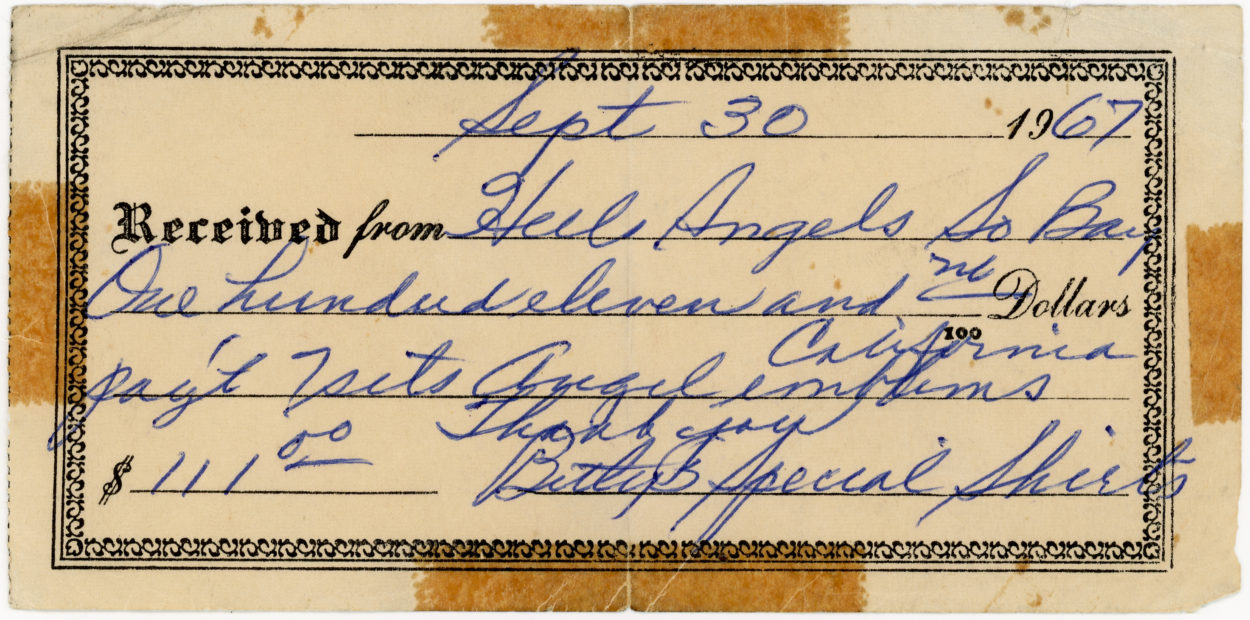 Sept 30 1967
Received from Hells Angels So Bay
One hundred eleven and no/100 Dollars
California
pay't 7 sets Angel emblems
Thank you
$ 111 00 Betty B Special Shirts